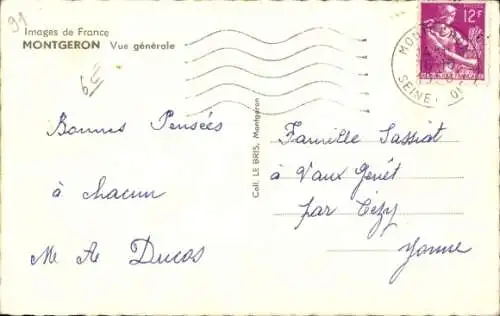 91
Images de France
MONTGERON Vue générale
12F
MON
SEINE
OI
6
Bonnes Pensées
à chacun
M Ducos
Coll. LE BRIS, Montgeron
Famille Sassiat
à Vaux Genêt
par Cézy
Yonne